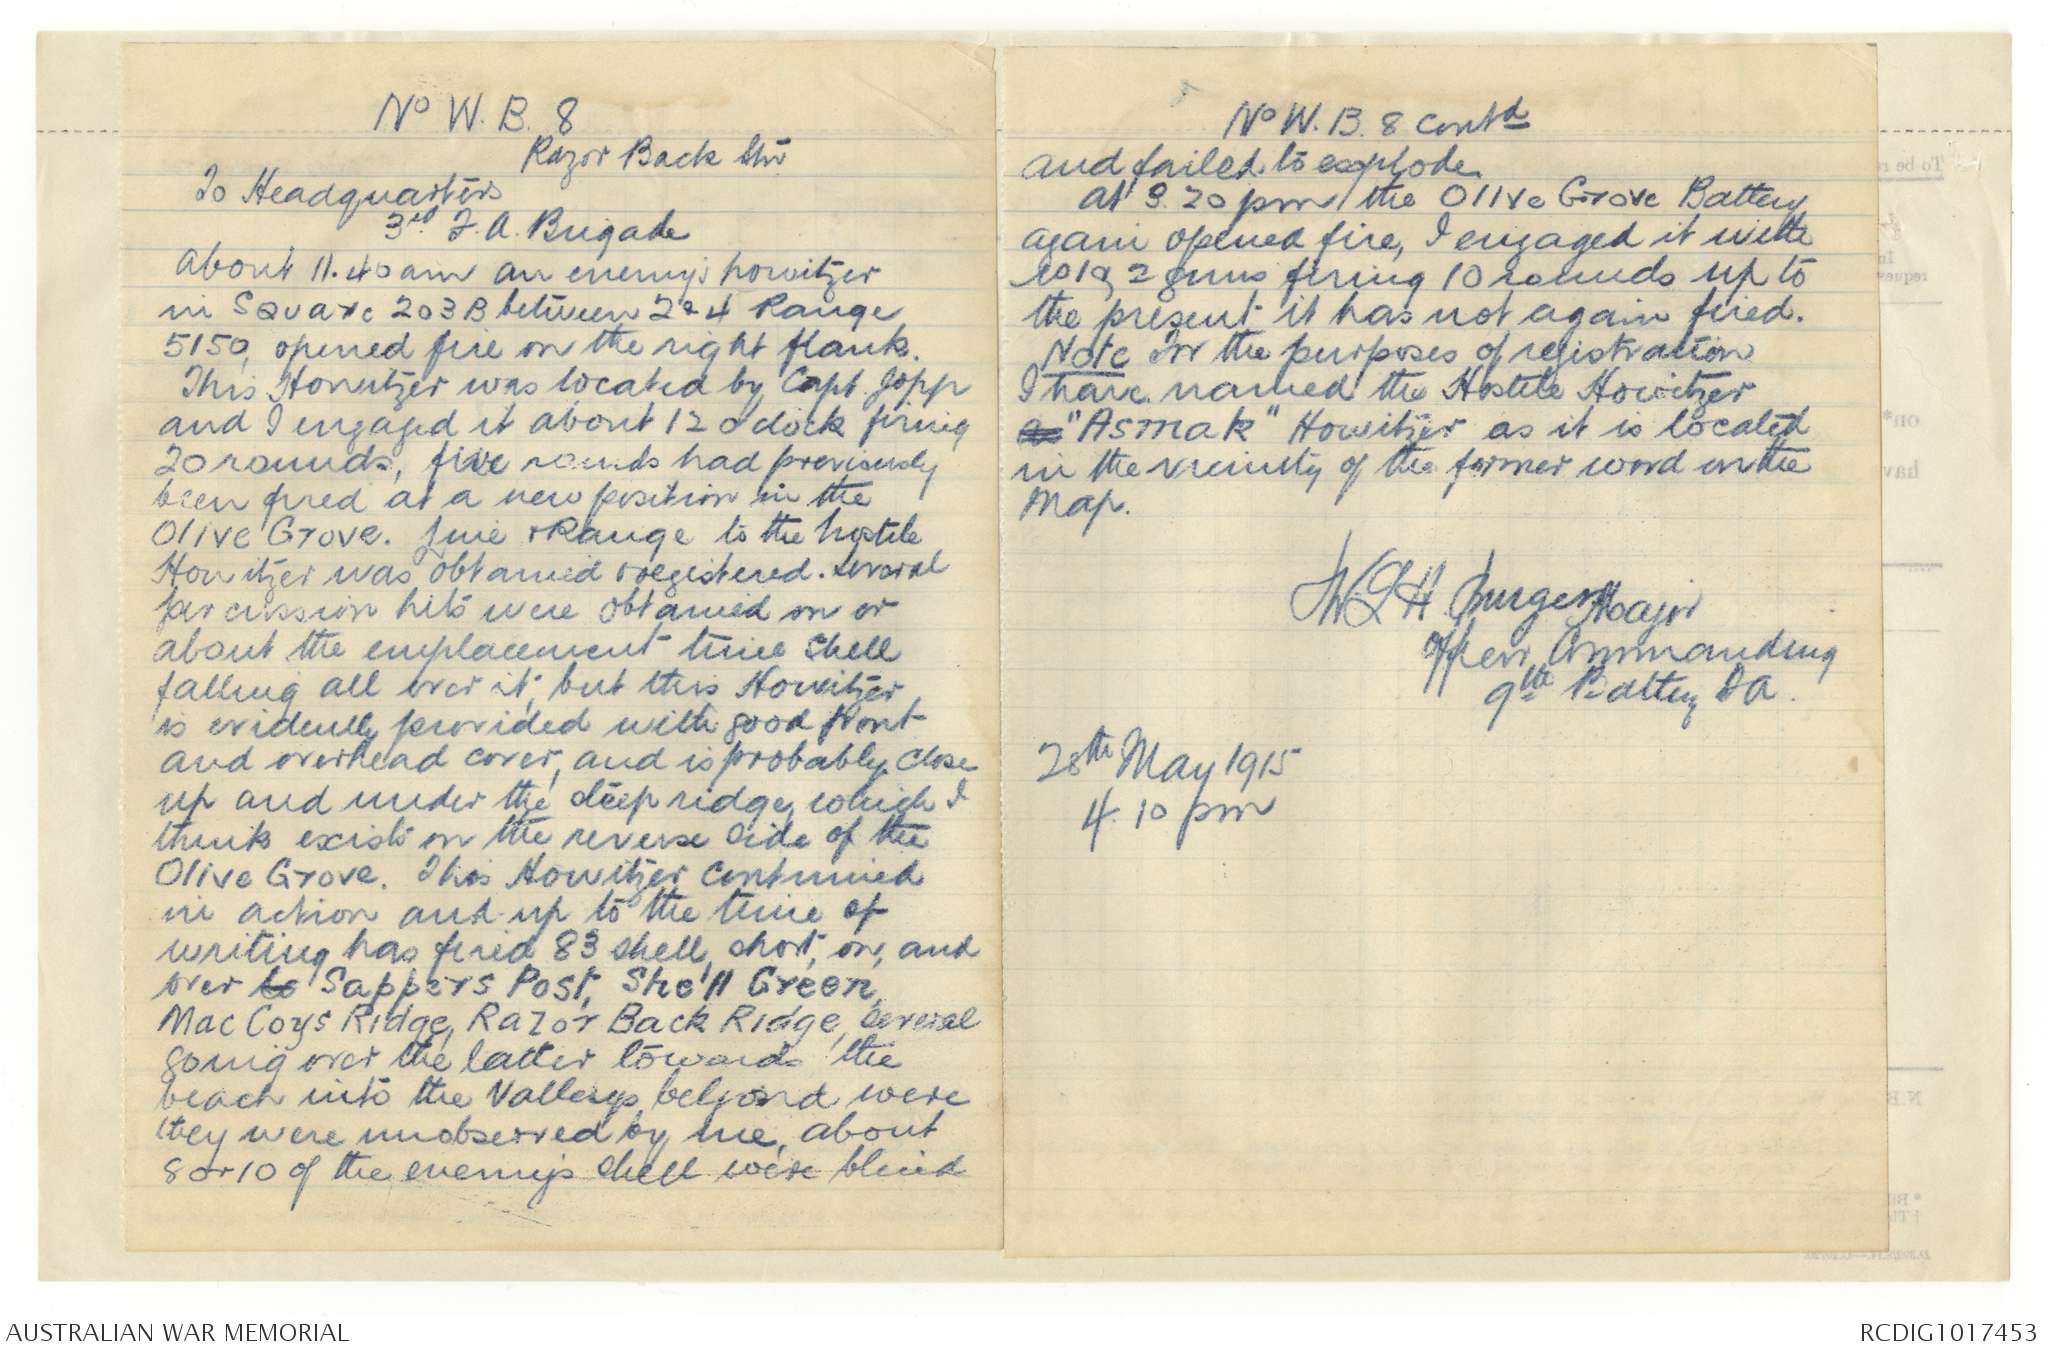 No W. B. 8
Razor Back Stn
To Headquarters
3rd F. A. Brigade
About 11.40 am an enemy's howitzer
in Square 203 B between 2 & 4 Range
5150, opened fire on the right flank.
This Howitzer was located by Capt. Jopp
and I engaged it about 12 o'clock firing
20 rounds, five rounds had previously
been fired at a new position in the
Olive Grove. Line & Range to the hostile
Howitzer was obtained & registered. Several
percussion hits were obtained on or
about the emplacement time shell
falling all over it, but this Howitzer
is evidently provided with good front
and overhead cover, and is probably close
up and under the deep ridge, which I
think exists on the reverse side of the
Olive Grove. This Howitzer continued
in action and up to the time of
writing has fired 83 shell, short, on, and
over to Sappers Post, Shell Green,
MacCoys Ridge, Razor Back Ridge, several
going over the latter towards the
beach into the Valleys beyond were
they were unobserved by me, about
8 or 10 of the enemy's shell were blind
No W. B. 8 contd
and failed to explode.
at 3.20 pm the Olive Grove Battery
again opened fire, I engaged it with
No 1 & 2 guns firing 10 rounds up to
the present it has not again fired.
Note For the purposes of registration
I have named the Hostile Howitzer
"Asmak" Howitzer as it is located
in the vicinity of the former word on the
Map.
W L H Burgess Major
Officer Commanding
9th Battery
28th May 1915
4.10 pm
To be re
In
reques
on*
hav
N.B
AUSTRALIAN WAR MEMORIAL
RCDIG1017453